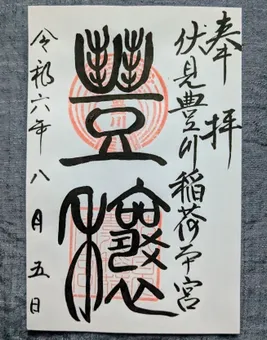 奉拝
伏見豊川稲荷本宮
豐穰
令和六年八月五日